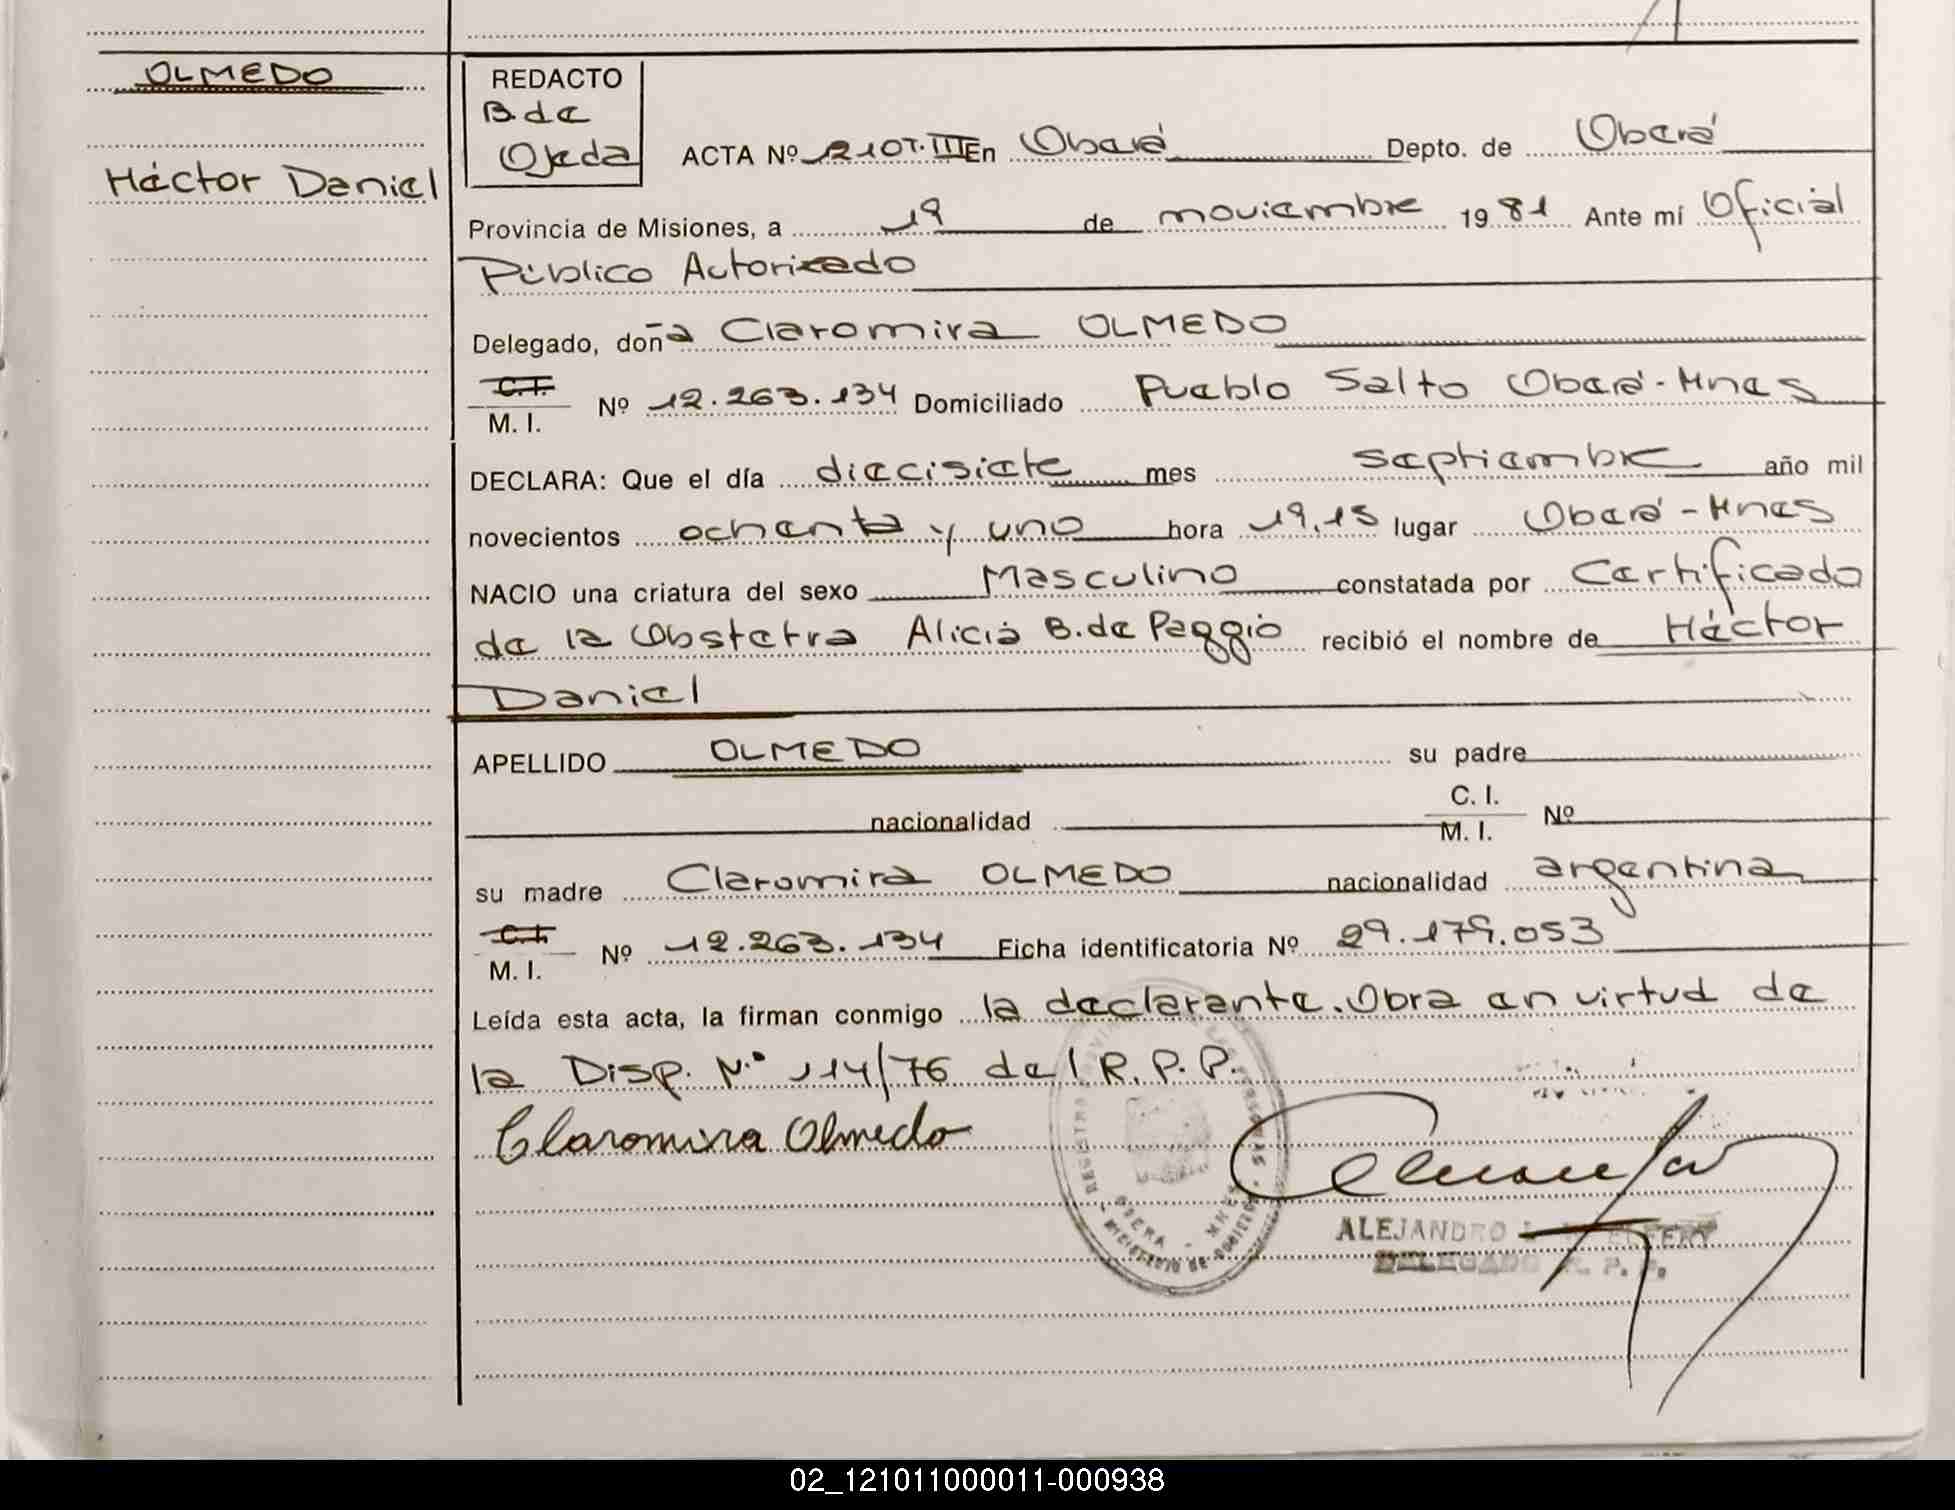 OLMEDO
Héctor Daniel
REDACTO
B. de
Ojeda
ACTA Nº 1210T.III En Oberá Depto. de Oberá
Provincia de Misiones, a 19 de noviembre 1981 Ante mí Oficial
Público Autorizado
Delegado, doña Claromira OLMEDO
C.I.
M. I. Nº 12.263.134 Domiciliado Pueblo Salto Oberá-Mnes
DECLARA: Que el día diecisiete mes septiembre año mil
novecientos ochenta y uno hora 19,15 lugar Oberá-Mnes
NACIO una criatura del sexo Masculino constatada por Certificado
de la Obstetra Alicia B. de Peggio recibió el nombre de Héctor
Daniel
APELLIDO OLMEDO su padre
nacionalidad C. I.
M. I. Nº
su madre Claromira OLMEDO nacionalidad argentina
C.I.
M. I. Nº 12.263.134 Ficha identificatoria Nº 29.179.053
Leída esta acta, la firman conmigo la declarante. Obra en virtud de
la Disp. N.° 114/76 del R.P.P.
Claromira Olmedo
OBERA - MNES
ALEJANDRO
DELEGADO R. P. P.
02_121011000011-000938